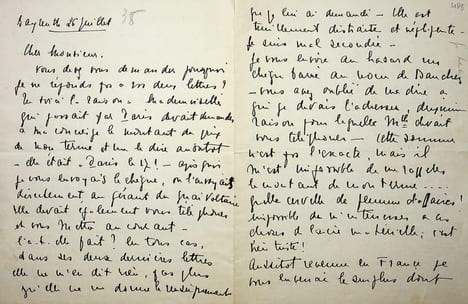 Bayreuth 26 juillet
38
Cher Monsieur.
Vous devez vous demander pourquoi
je ne réponds pas à vos deux lettres?
En voici la raison - Mademoiselle
qui passait par Paris devait demander
à ma concierge le montant du prix
de mon terme et me le dire aussitôt
- elle était à Paris le 17! - ainsi
je vous envoyais le chèque, ou l'envoyais
directement au gérant du quai Voltaire
Elle devait également vous téléphoner
et vous mettre au courant -
L'a-t-elle fait? En tous cas,
dans ses deux dernières lettres
elle ne m'en dit rien, pas plus
qu'elle ne me donne le renseignement
que je lui ai demandé - Elle est
tellement distraite et négligente -
Je suis mal secondée -
Je vous envoie au hasard un
chèque barré au nom de
- vous avez oublié de me dire à
qui je devais l'adresser,
raison pour laquelle Mlle devait
vous téléphoner - Cette somme
n'est pas l'exacte, mais il
m'est impossible de me rappeler
le montant de mon terme ....
quelle cervelle de femme d'affaires!
impossible de m'intéresser à ces
choses de la vie matérielle; c'est
bien triste!
Aussitôt revenue en France je
vous enverrai le surplus dont